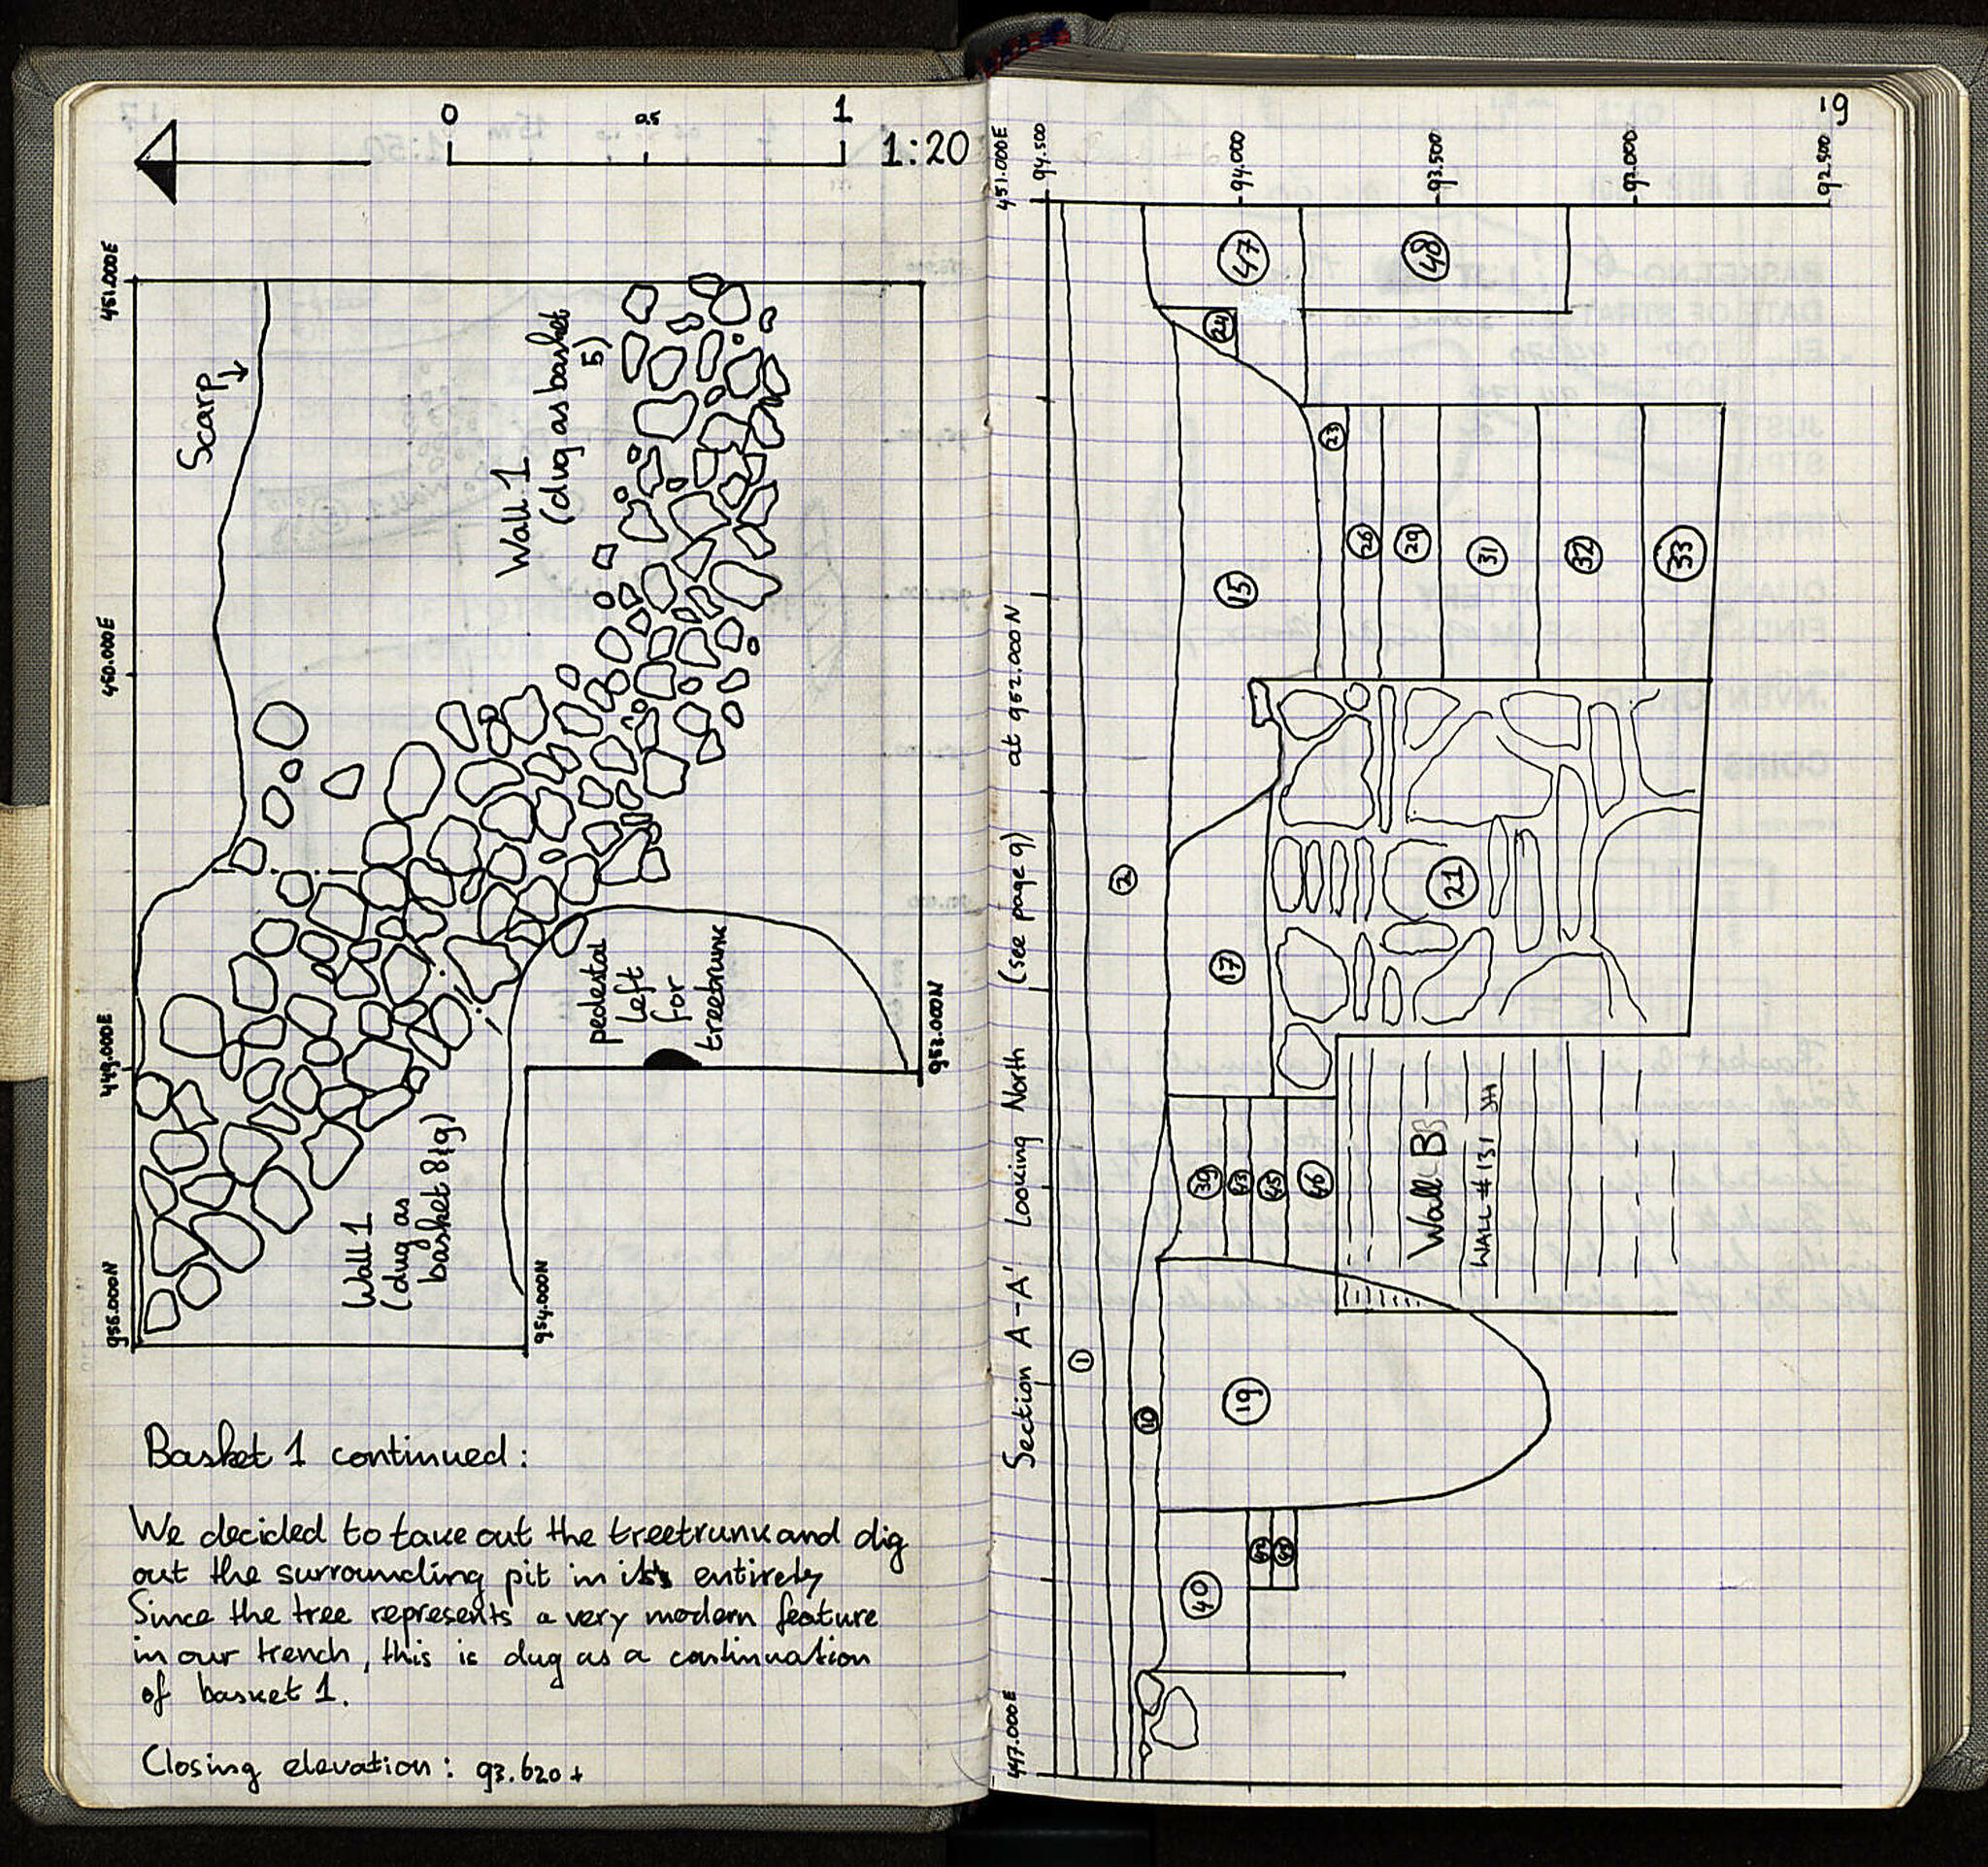 0
0.5
1
1:20
451.000E
Scarp
Wall 1
(dug as basket
5)
450.000E
449.000E
pedestal
left
for
treetrunk
953.000N
Wall 1
(dug as
basket 8&9)
955.000N
954.000N
Basket 1 continued:
We decided to take out the treetrunk and dig
out the surrounding pit in it's entirety
Since the tree represents a very modern feature
in our trench, this is dug as a continuation
of basket 1.
Closing elevation: 93.620+
19
451.000E
94.500
94.000
93.500
93.000
92.500
47
48
24
23
26
29
31
32
33
15
2
21
17
39
43
45
46
Wall B
WALL # 131 JH
1
10
19
40
Section A-A' Looking North (see page 9) at 952.000N
447.000E